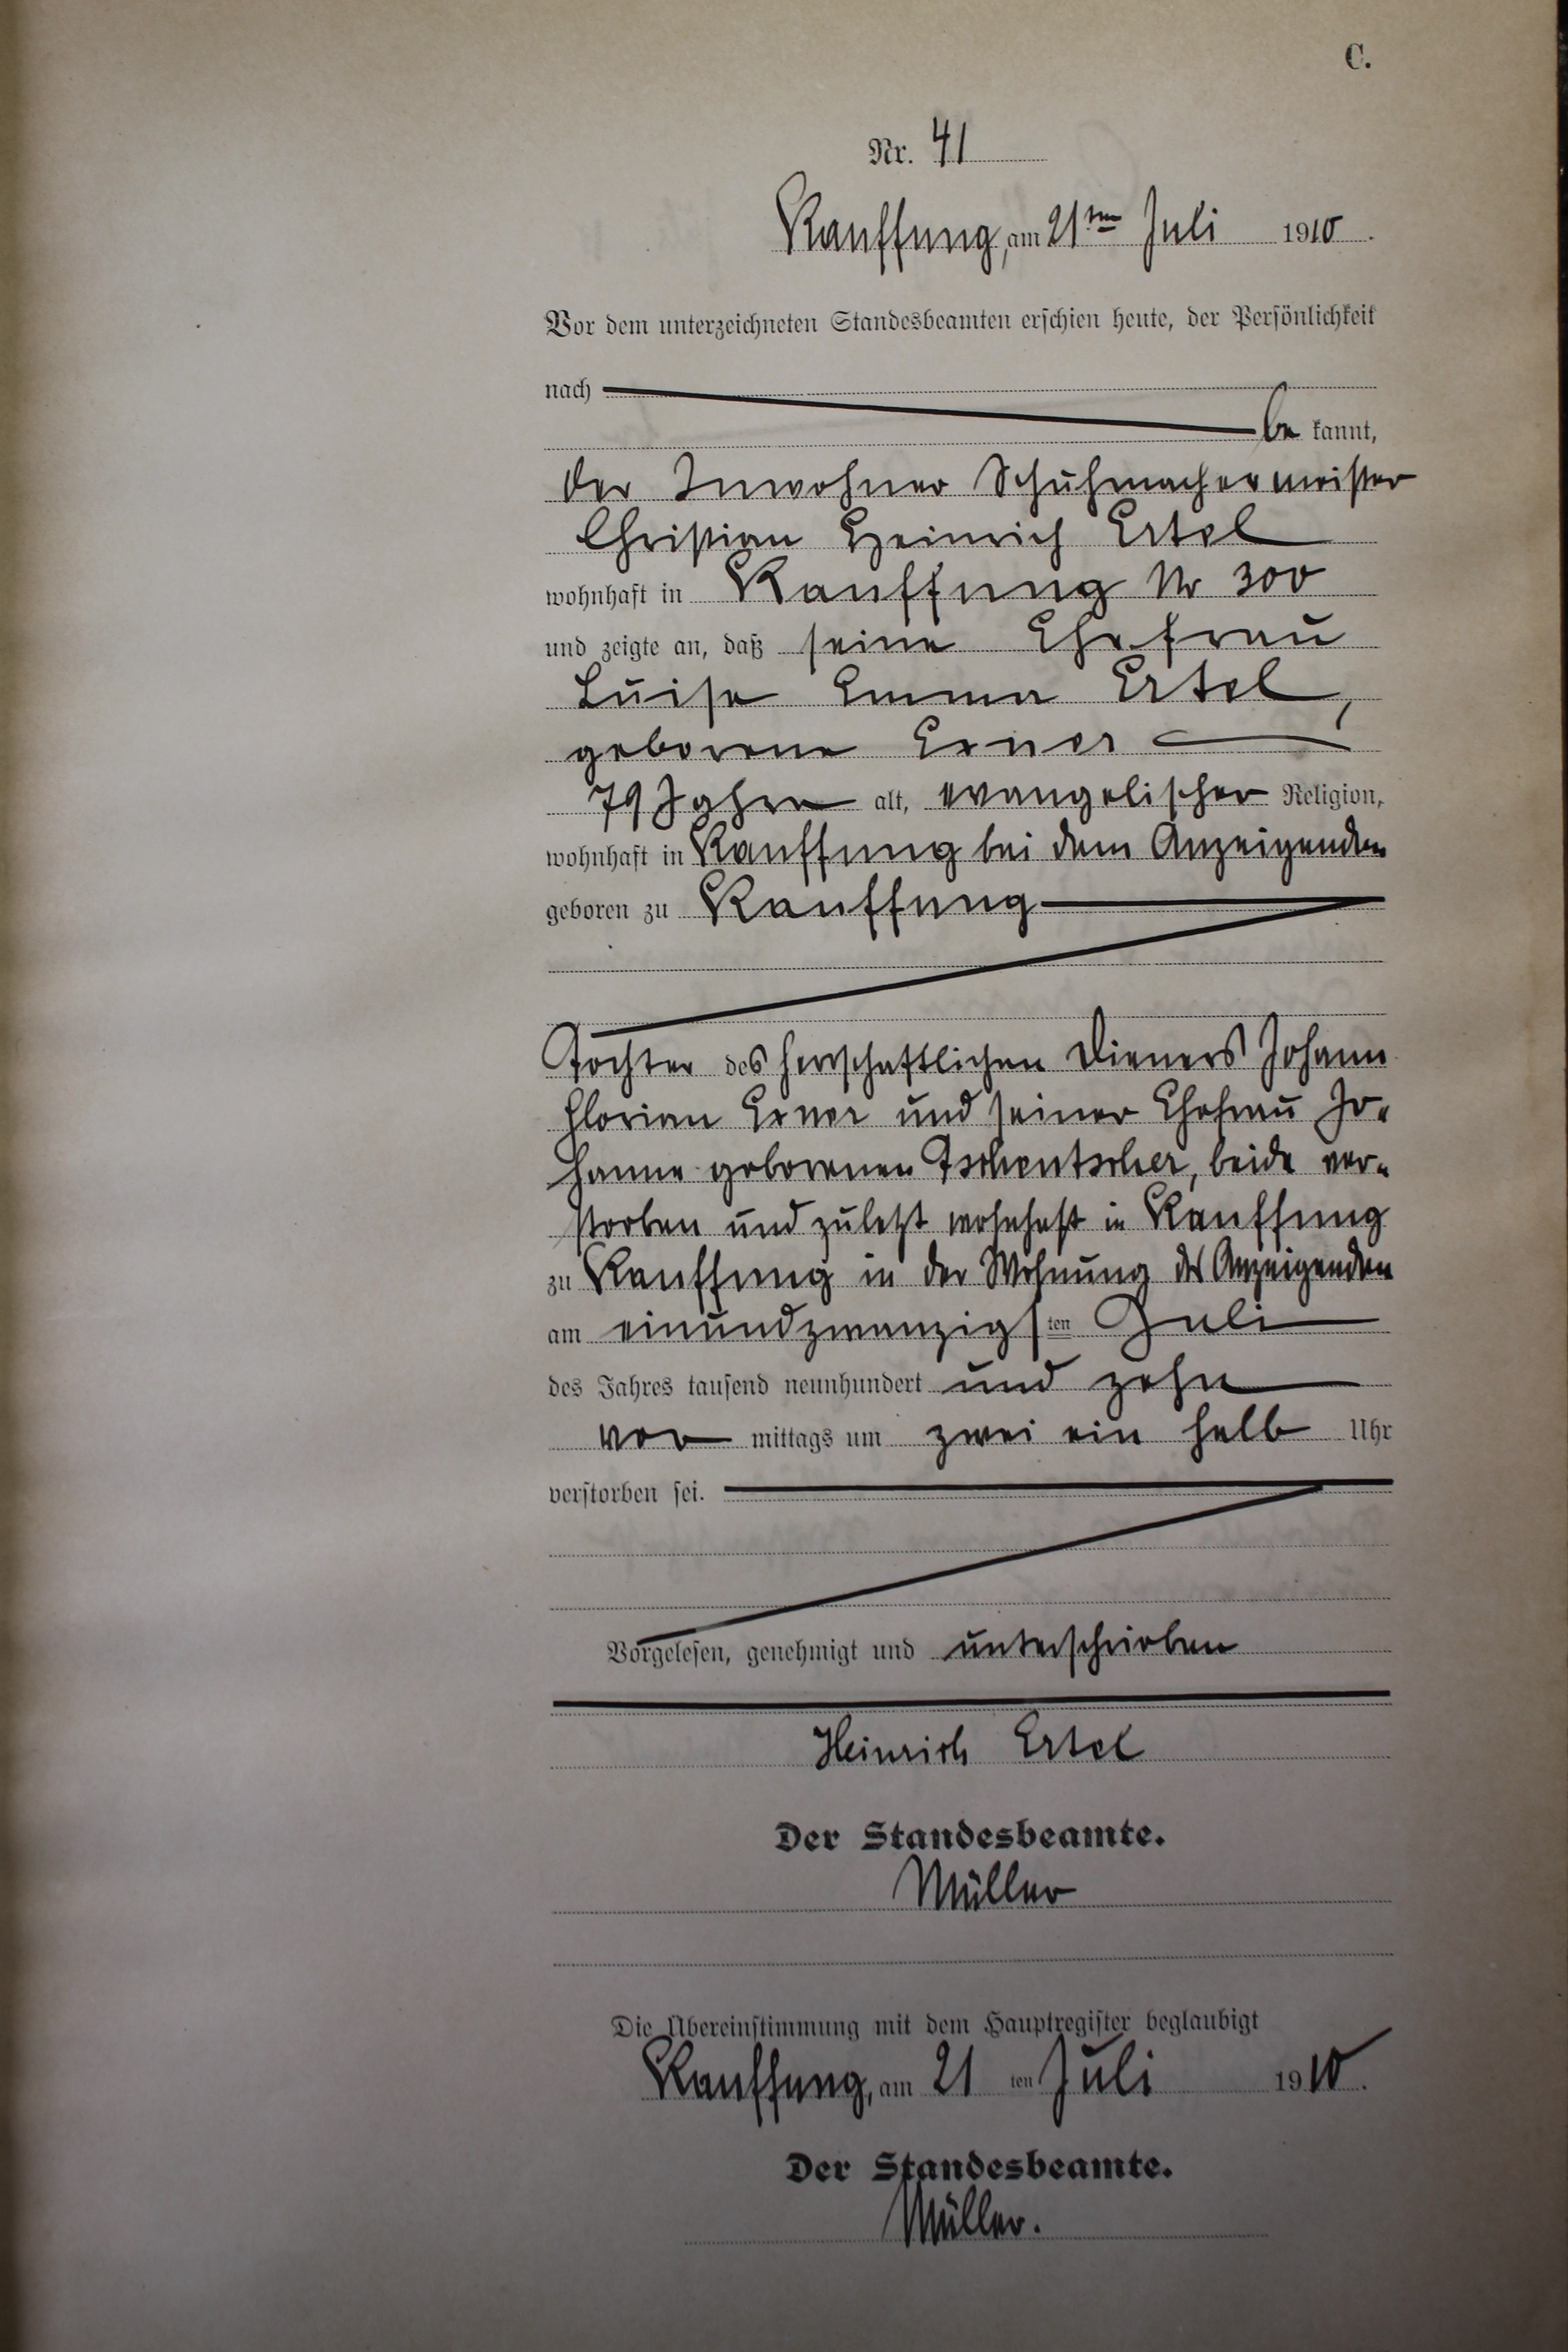 C.
Nr. 41
Kauffung, am 21ten Juli 1910.
Vor dem unterzeichneten Standesbeamten erschien heute, der Persönlichkeit
nach
be kannt,
der Inwohner Schuhmachermeister
Christian Heinrich Ertel
wohnhaft in Kauffung Nr 300
und zeigte an, daß seine Ehefrau
Luise Emma Ertel,
geborene Exner
79 Jahre alt, evangelischer Religion,
wohnhaft in Kauffung bei dem Anzeigenden
geboren zu Kauffung
Tochter des herrschaftlichen Dieners Johann
Florian Exner und seiner Ehefrau Jo-
hanne geborenen Tschentscher, beide ver-
storben und zuletzt wohnhaft in Kauffung
zu Kauffung in der Wohnung des Anzeigenden
am einundzwanzigsten Juli
des Jahres tausend neunhundert und zehn
vor mittags um zwei ein halb Uhr
verstorben sei.
Vorgelesen, genehmigt und unterschrieben
Heinrich Ertel
Der Standesbeamte.
Müller
Die Übereinstimmung mit dem Hauptregister beglaubigt
Kauffung, am 21 ten Juli 1910.
Der Standesbeamte.
Müller.